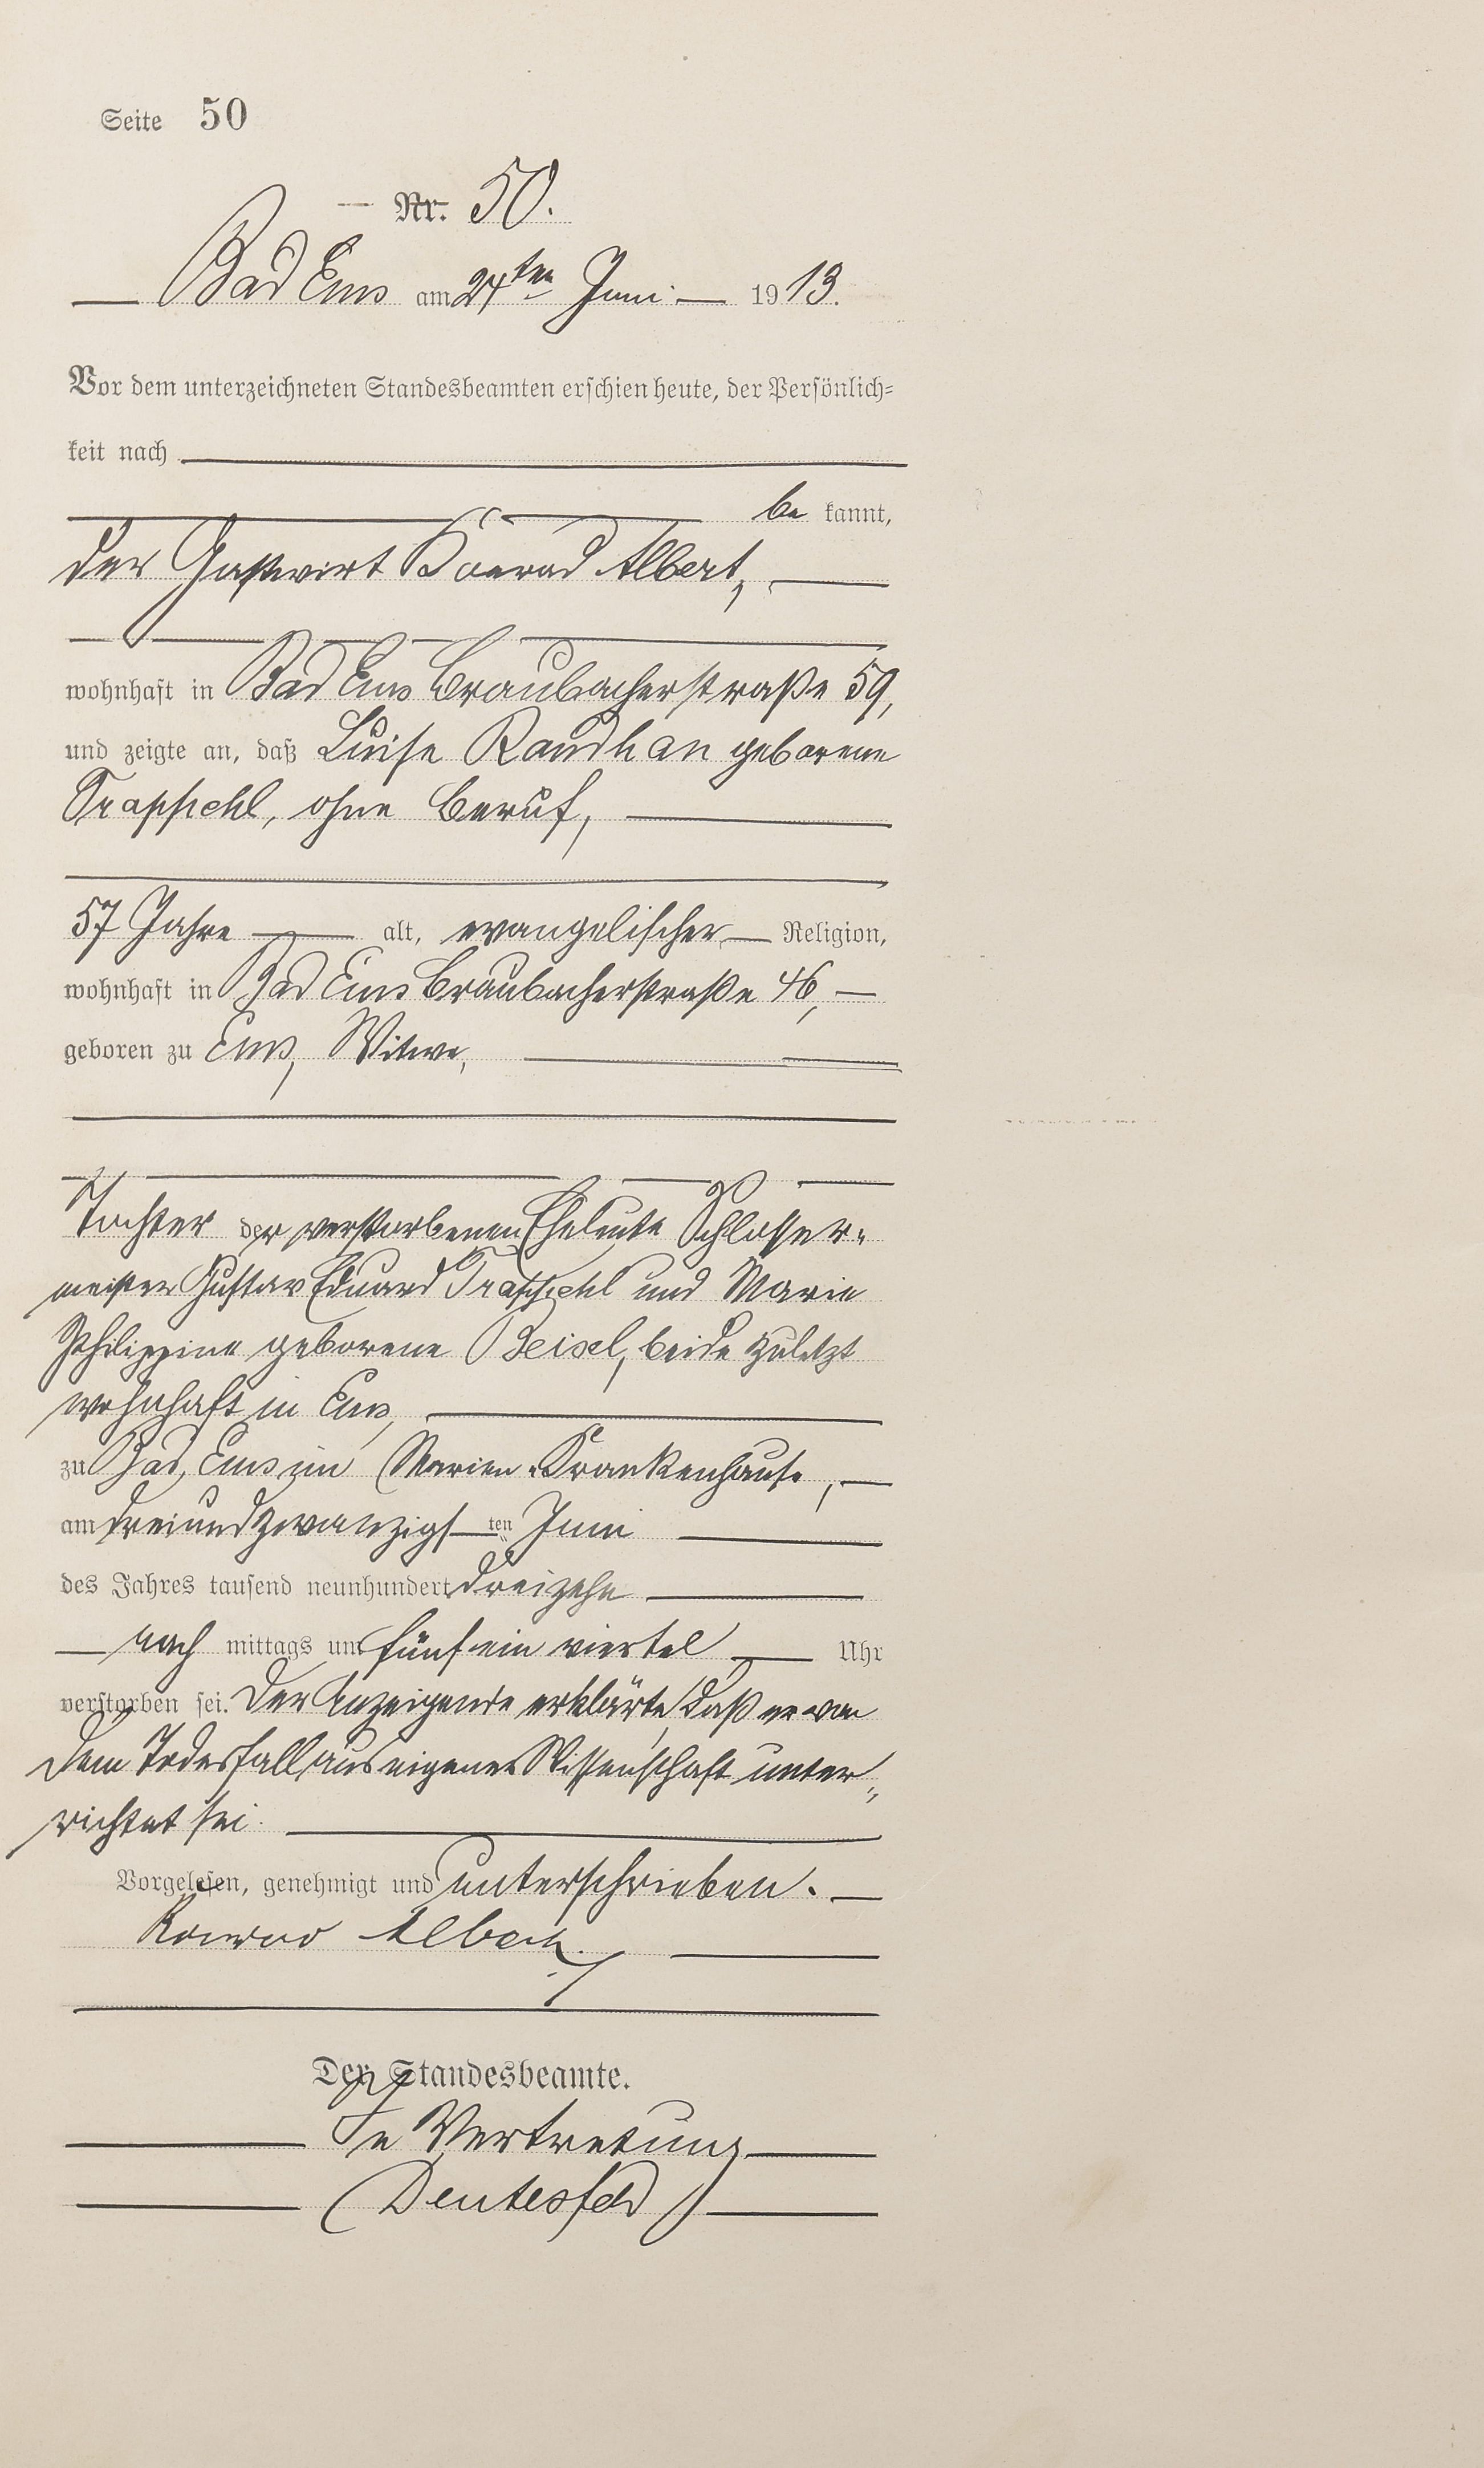 Seite 50
Nr. 50.
Bad Ems am 24ten Juni 1913.
Vor dem unterzeichneten Standesbeamten erschien heute, der Persönlich-
keit nach
be kannt,
der Gastwirt Konrad Albert,
wohnhaft in Bad Ems Braubacherstraße 59,
und zeigte an, daß Luise Raudhan geborene
Trappiehl, ohne Beruf,
57 Jahre alt, evangelischer Religion,
wohnhaft in Bad Ems Braubacherstraße 46,
geboren zu Ems, Witwe,
Tochter der verstorbenen Eheleute Schlosser-
meister Gustav Eduard Trappiehl und Marie
Philippine geborene Beisel, beide zuletzt
wohnhaft in Ems,
zu Bad Ems im Marien-Krankenhause,
am dreiundzwanzigsten Juni
des Jahres tausend neunhundert dreizehn
nach mittags um fünf ein viertel Uhr
verstorben sei. Der Anzeigende erklärte, daß er von
dem Todesfall aus eigener Wissenschaft unter-
richtet sei.
Vorgelesen, genehmigt und unterschrieben.
Konrad Albert.
Der Standesbeamte.
In Vertretung